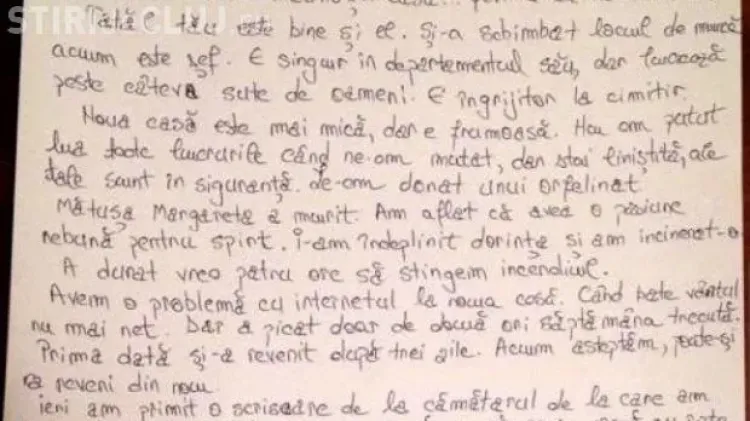 STIRI CLUJ
Tatăl tău este bine și el. Și-a schimbat locul de muncă,
acum este șef. E singur în departamentul său, dar lucrează
peste câteva sute de oameni. E îngrijitor la cimitir.
Noua casă este mai mică, dar e frumoasă. Nu am putut
lua toate lucrurile când ne-am mutat, dar stai liniștită, ale
tale sunt în siguranță. Le-am donat unui orfelinat.
Mătușa Margareta a murit. Am aflat că avea o pasiune
nebună pentru spirt. I-am îndeplinit dorința și am incinerat-o
A durat vreo patru ore să stingem incendiul.
Avem o problemă cu internetul la noua casă. Când bate vântul
nu mai net. Dar a picat doar de două ori săptămâna trecută.
Prima dată și-a revenit după trei zile. Acum așteptăm, poate-și
va reveni din nou.
ieri am primit o scrisoare de la cămătarul de la care am